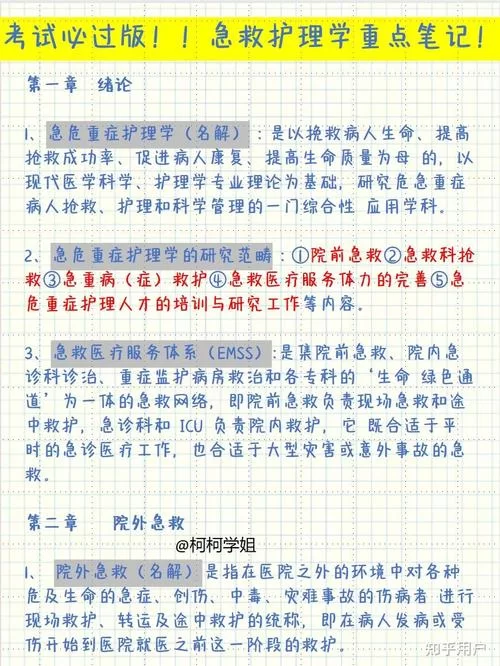 考试必过版！！急救护理学重点笔记！
第一章 绪论
1、急危重症护理学（名解）：是以挽救病人生命、提高
抢救成功率、促进病人康复、提高生命质量为母 的，以
现代医学科学、护理学专业理论为基础，研究危急重症
病人抢救、护理和科学管理的一门综合性 应用学科。
2、急危重症护理学的研究范畴：①院前急救②急救科抢
救③急重病（症）救护④急救医疗服务体力的完善⑤急
危重症护理人才的培训与研究工作等内容。
3、急救医疗服务体系（EMSS）:是集院前急救、院内急
诊科诊治、重症监护病房救治和各专科的‘生命 绿色通
道’为一体的急救网络，即院前急救负责现场急救和途
中救护，急诊科和 ICU 负责院内救护，它 既合适于平
时的急诊医疗工作，也合适于大型灾害或意外事故的急
救。
第二章 院外急救
@柯柯学姐
1、 院外急救（名解）是指在医院之外的环境中对各种
危及生命的急症、创伤、中毒、灾难事故的伤病者 进行
现场救护、转运及途中救护的统称，即在病人发病或受
伤开始到医院就医之前这一阶段的救护。
知乎用户